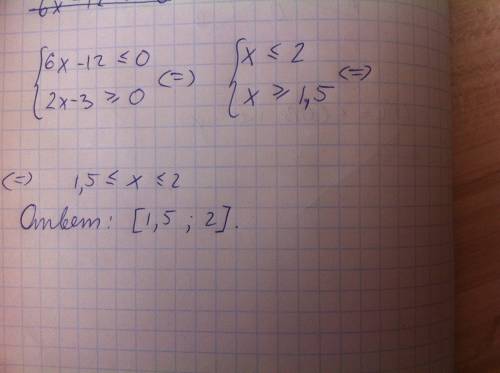 {6x-12 ≤ 0 (=) {x ≤ 2 (=)
{2x-3 ≥ 0 {x ≥ 1,5
(=) 1,5 ≤ x ≤ 2
Ответ: [1,5 ; 2].